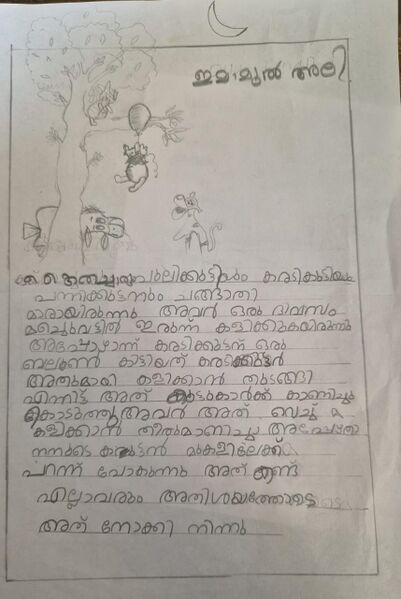 ഇമാമുൽ അലി
പുലിക്കുട്ടിയും കരടികുട്ടിയും
പന്നിക്കുട്ടനും ചങ്ങാതി
മരായിരുന്നു അവർ ഒരു ദിവസം
മരച്ചുവട്ടിൽ ഇരുന്ന് കളിക്കുകയിരുന്നു
അപ്പോഴാന്ന് കരടിക്കുട്ടന് ഒരു
ബലൂൺ കിട്ടിയത് കരടിക്കുട്ടൻ
അതുമായി കളിക്കാൻ തുടങ്ങി
എന്നിട്ട് അത് കൂട്ടുകാർക്ക് കാണിച്ചു
കൊടുത്തു അവർ അത് വെച്ച്
കളിക്കാൻ തീരുമാണിച്ചു
മുകളിലേക്ക്
പറന്ന് പോകുന്നു അത് കണ്ട്
എല്ലാവരും അതിശയത്തോടെ
അത് നോക്കി നിന്നു